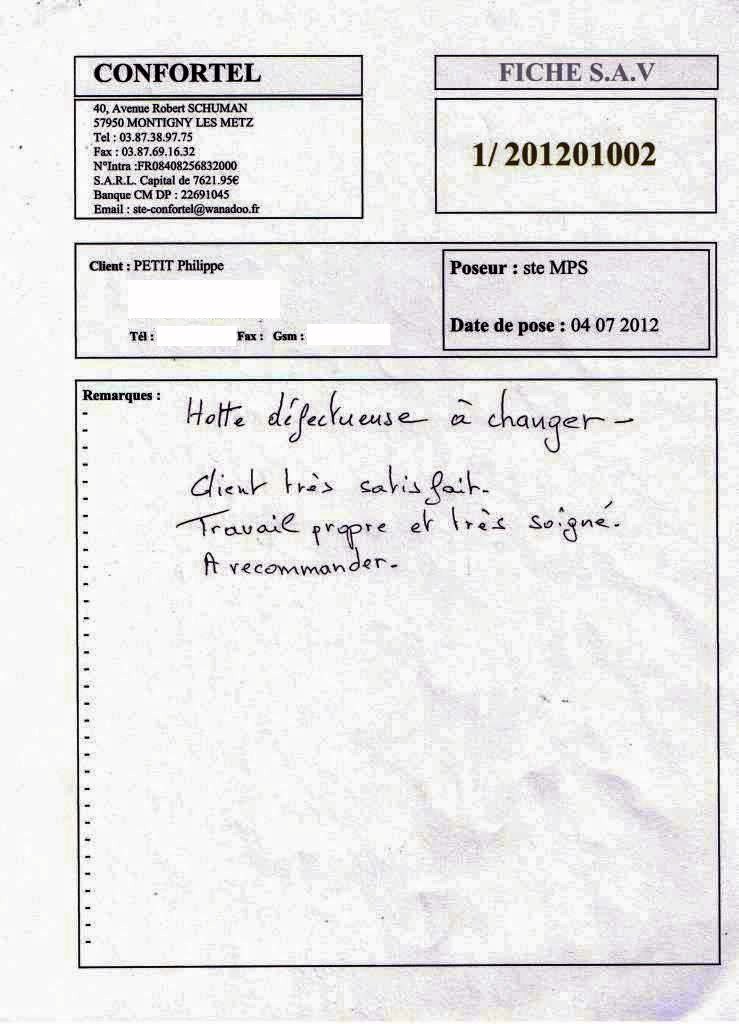 CONFORTEL
40, Avenue Robert SCHUMAN
57950 MONTIGNY LES METZ
Tel : 03.87.38.97.75
Fax : 03.87.69.16.32
N°Intra :FR08408256832000
S.A.R.L. Capital de 7621.95€
Banque CM DP : 22691045
Email : ste-confortel@wanadoo.fr
FICHE S.A.V
1/ 201201002
Client : PETIT Philippe
Tél : Fax : Gsm :
Poseur : ste MPS
Date de pose : 04 07 2012
Remarques :
Hotte défectueuse à changer -
Client très satisfait.
Travail propre et très soigné.
A recommander.